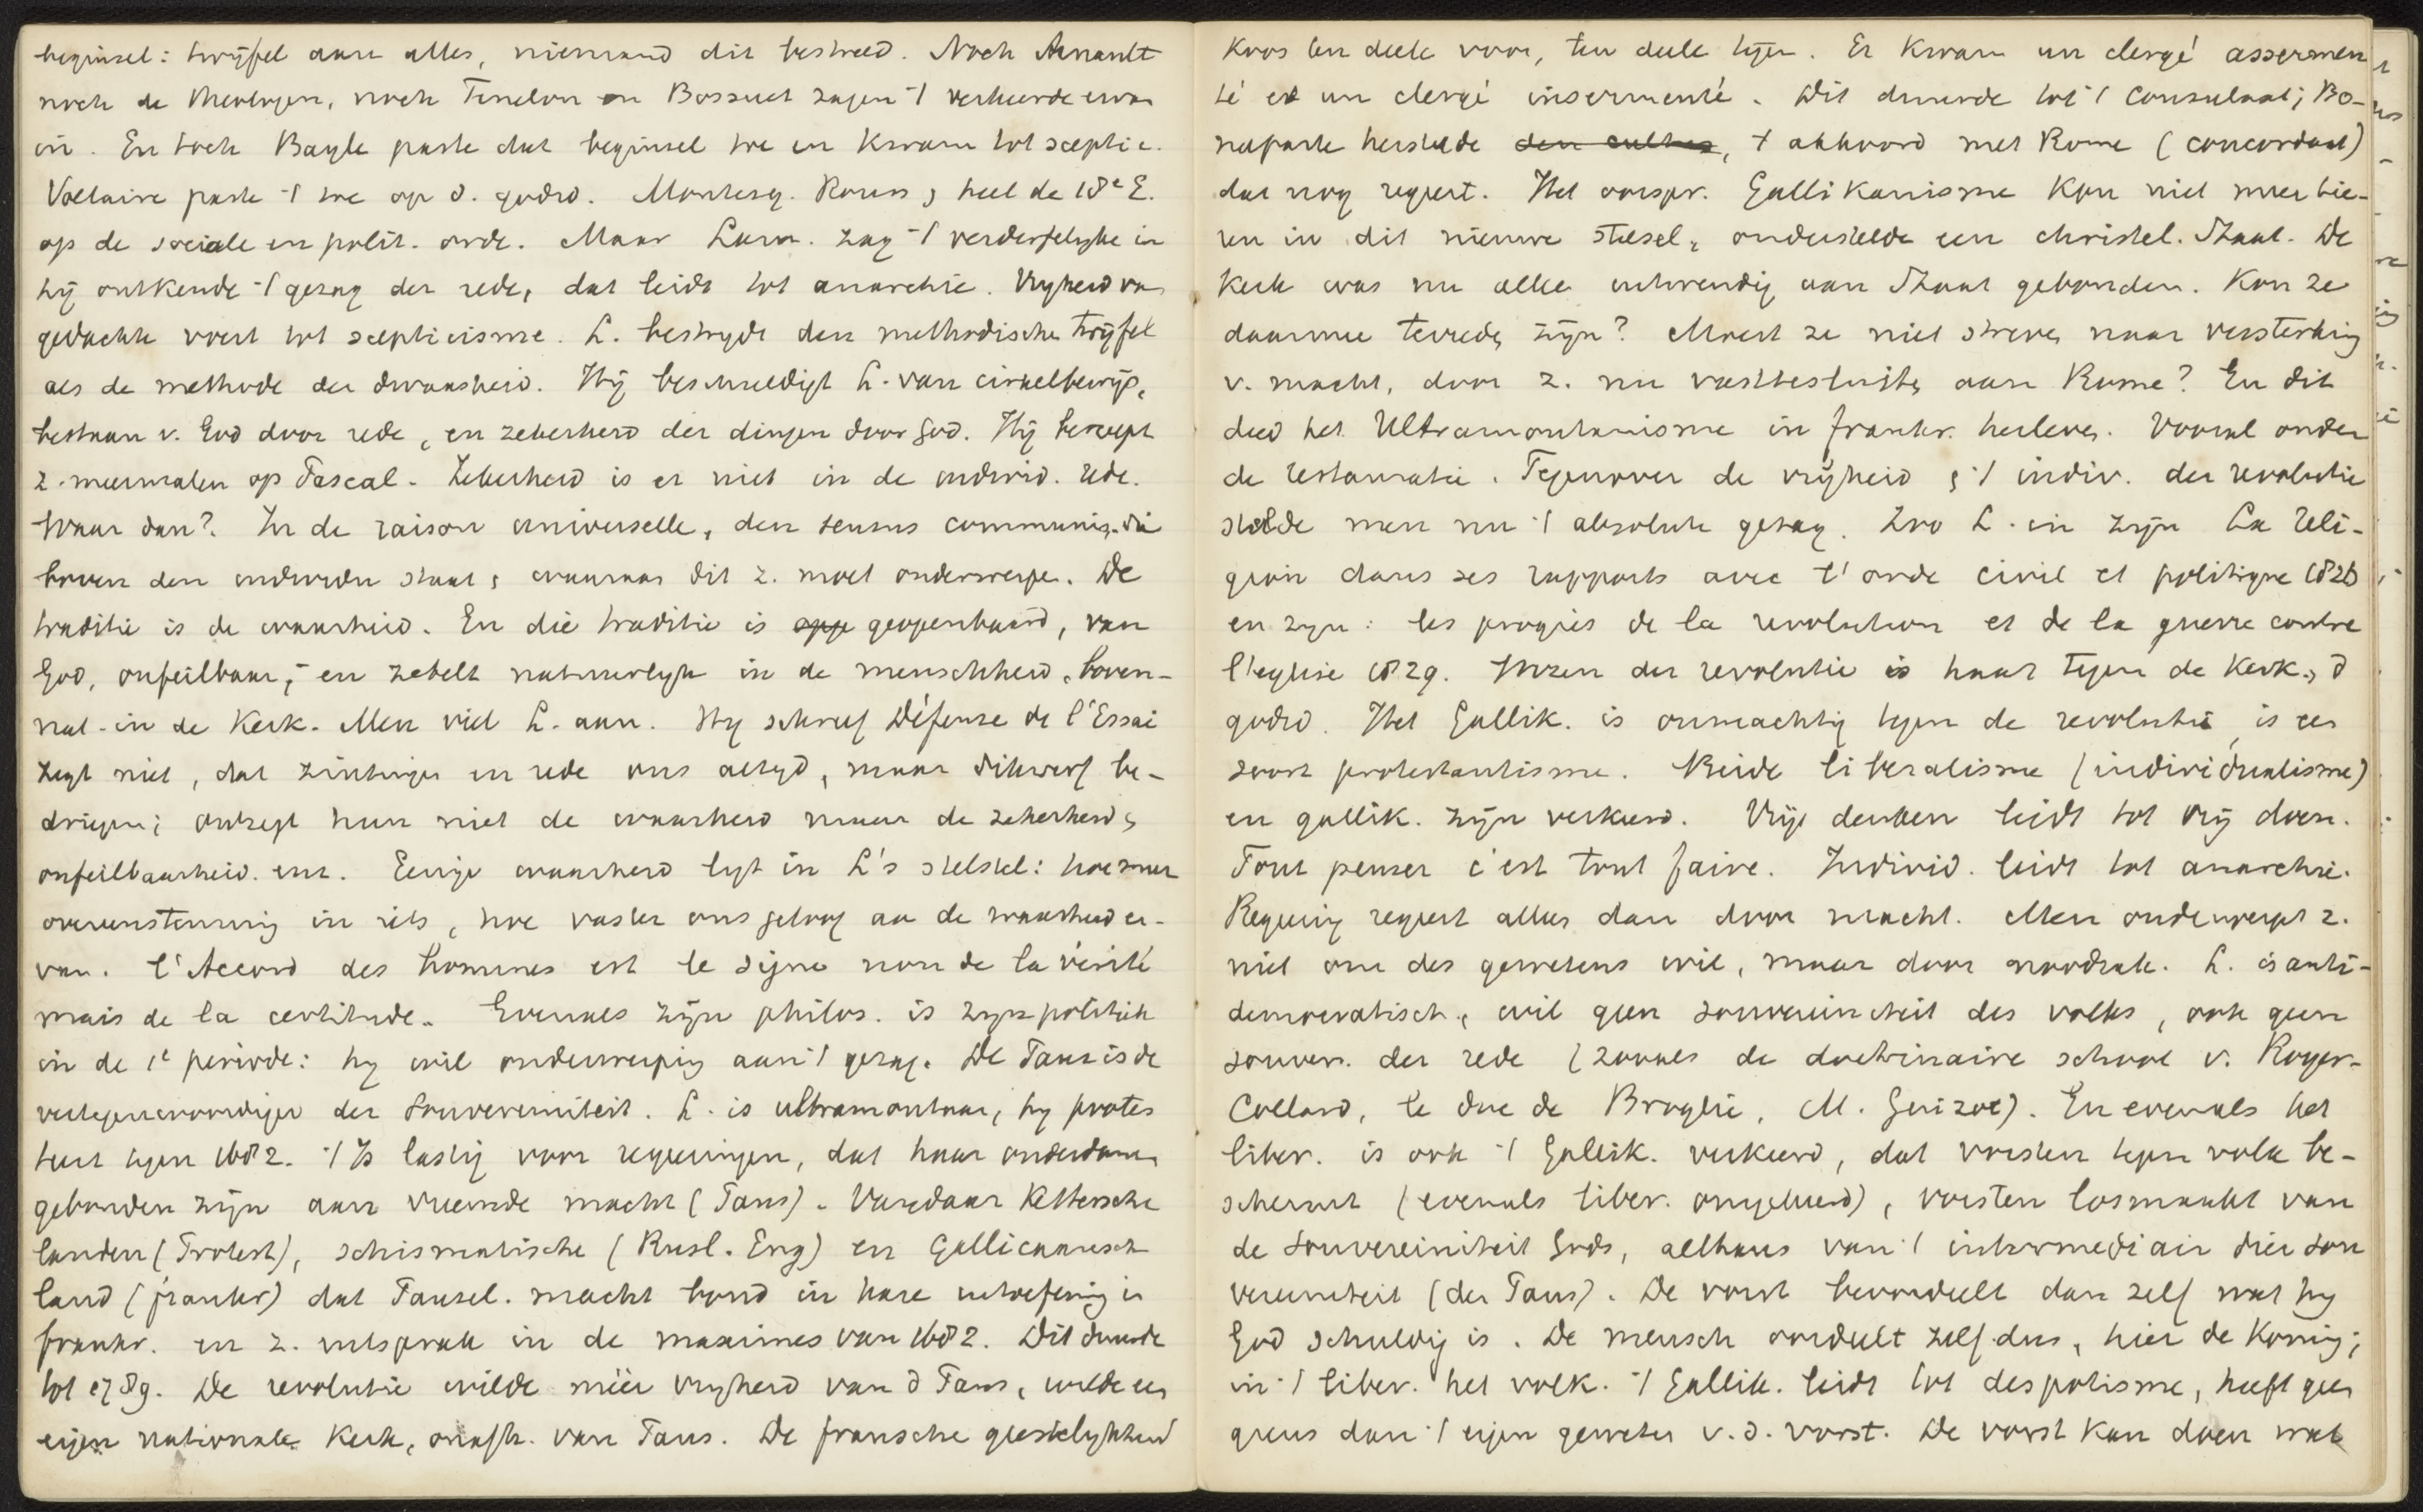 beginsel: twijfel aan alles, niemand dit bestreed. Noch Arnault
noch de theologen, noch Fenelon en Bossuet zagen 't verkeerde ervan
in. En toch Bayle paste dat beginsel toe en kwam tot sceptic.
Voltaire paste 't toe op d. godsd. Montesq. Rouss, heel de 18e E.
op de sociale en polit. orde. Maar Lam. zag 't verderfelyke in
hy ontkende 't gezag der rede, dat leidt tot anarchie. Vryheid van
gedachte voert tot scepticisme. L. bestrydt den methodische twyfel
als de methode der dwaasheid. Hij beschuldigt L. van cirkelbewijs,
bestaan v. God door rede, en zekerheid der dingen door God. Hij beroept
z. meermalen op Pascal. Zekerheid is er niet in de individ. rede.
Waar dan? In de raison universelle, den sensus communis, die
boven den individu staat, waaraan dit z. moet onderwerpen. De
traditie is de waarheid. En die traditie is geopenbaard, van
God, onfeilbaar, en zetelt natuurlyk in de menschheid, boven-
nat. in de Kerk. Men viel L. aan. Hy schreef Défense de l'Essai
zegt niet, dat zintuigen en rede ons altyd, maar dikwerf be-
driegen; ontzegt hun niet de waarheid maar de zekerheid,
onfeilbaarheid enz. Eenige waarheid ligt in L's stelsel: hoe meer
overeenstemming in iets, hoe vaster ons geloof aan de waarheid er-
van. l'Accord des hommes est le signe non de la vérité
mais de la certitude. Evenals zijn philos. is zyn politiek
in de 1e periode: hy wil onderwerping aan 't gezag. De Paus is de
vertegenwoordiger der souvereiniteit. L. is ultramontaan, hy protes
teert tegen 1682. 't Is lastig voor regeeringen, dat haar onderdanen
gebonden zijn aan vreemde macht (Paus). Vandaar Kettersche
landen (Protest), schismatische (Rusl. Eng) en Gallicaansch
land (frankr) dat Pausel. macht bond in hare uitoefening in
frankr. en z. uitsprak in de maximes van 1682. Dit duurde
tot 1789. De revolutie wilde méér vryheid van d Paus, wilde een
eigen nationale Kerk, onafh. van Paus. De fransche geestelykheid
koos ten deele voor, ten deele tegen. Er kwam un clergé assermen
té et un clergé insermenté. Dit duurde tot 't Consulaat; Bo-
naparte herstelde den cultus, 't akkoord met Rome (concordaat)
dat nog regeert. Het oorspr. Gallikanisme kon niet meer tie-
ren in dit nieuwe stelsel, onderstelde een christel. Staat. De
Kerk was nu alleen uitwendig aan Staat gebonden. Kon ze
daarmee tevreden zijn? Moest ze niet streven naar versterking
v. macht, door z. nu vast te sluiten aan Rome? En dit
deed het Ultramontanisme in frankr. herleven. Vooral onder
de restauratie. Tegenover de vrijheid en 't indiv. der revolutie
stelde men nu 't absolute gezag. Zoo L. in zijn La Reli-
gion dans ses rapports avec l'orde civil et politique 1826
en zyn: les progrès de la revolution et de la guerre contre
l'eglise 1829. Wezen der revolutie is haat tegen de Kerk, d
godsd. Het Gallik. is onmachtig tegen de revolutie, is een
soort protestantisme. Beide liberalisme (individualisme)
en gallik. zijn verkeerd. Vrij denken leidt tot vrij doen.
Tout penser c'est tout faire. Individ. leidt tot anarchie.
Regeering regeert alles dan door macht. Men onderwerpt z.
niet om des gewetens wil, maar door noodzak. L. is anti-
democratisch, wil geen souvereiniteit des volks, ook geen
souver. der rede (zooals de doctrinaire school v. Royer-
Collard, le duc de Broglie, M. Guizot). En evenals het
liber. is ook 't Gallik. verkeerd, dat vorsten tegen volk be-
schermt (evenals liber. omgekeerd), vorsten losmaakt van
de souvereiniteit Gods, althans van 't intermediair dier sou
vereiniteit (den Paus). De vorst beoordeelt dan zelf wat hy
God schuldig is. De mensch oordeelt zelf dus, hier de Koning;
in 't liber. het volk. 't Gallik. leidt tot despotisme, heeft geen
grens dan 't eigen geweten v. d. vorst. De vorst kan doen wat